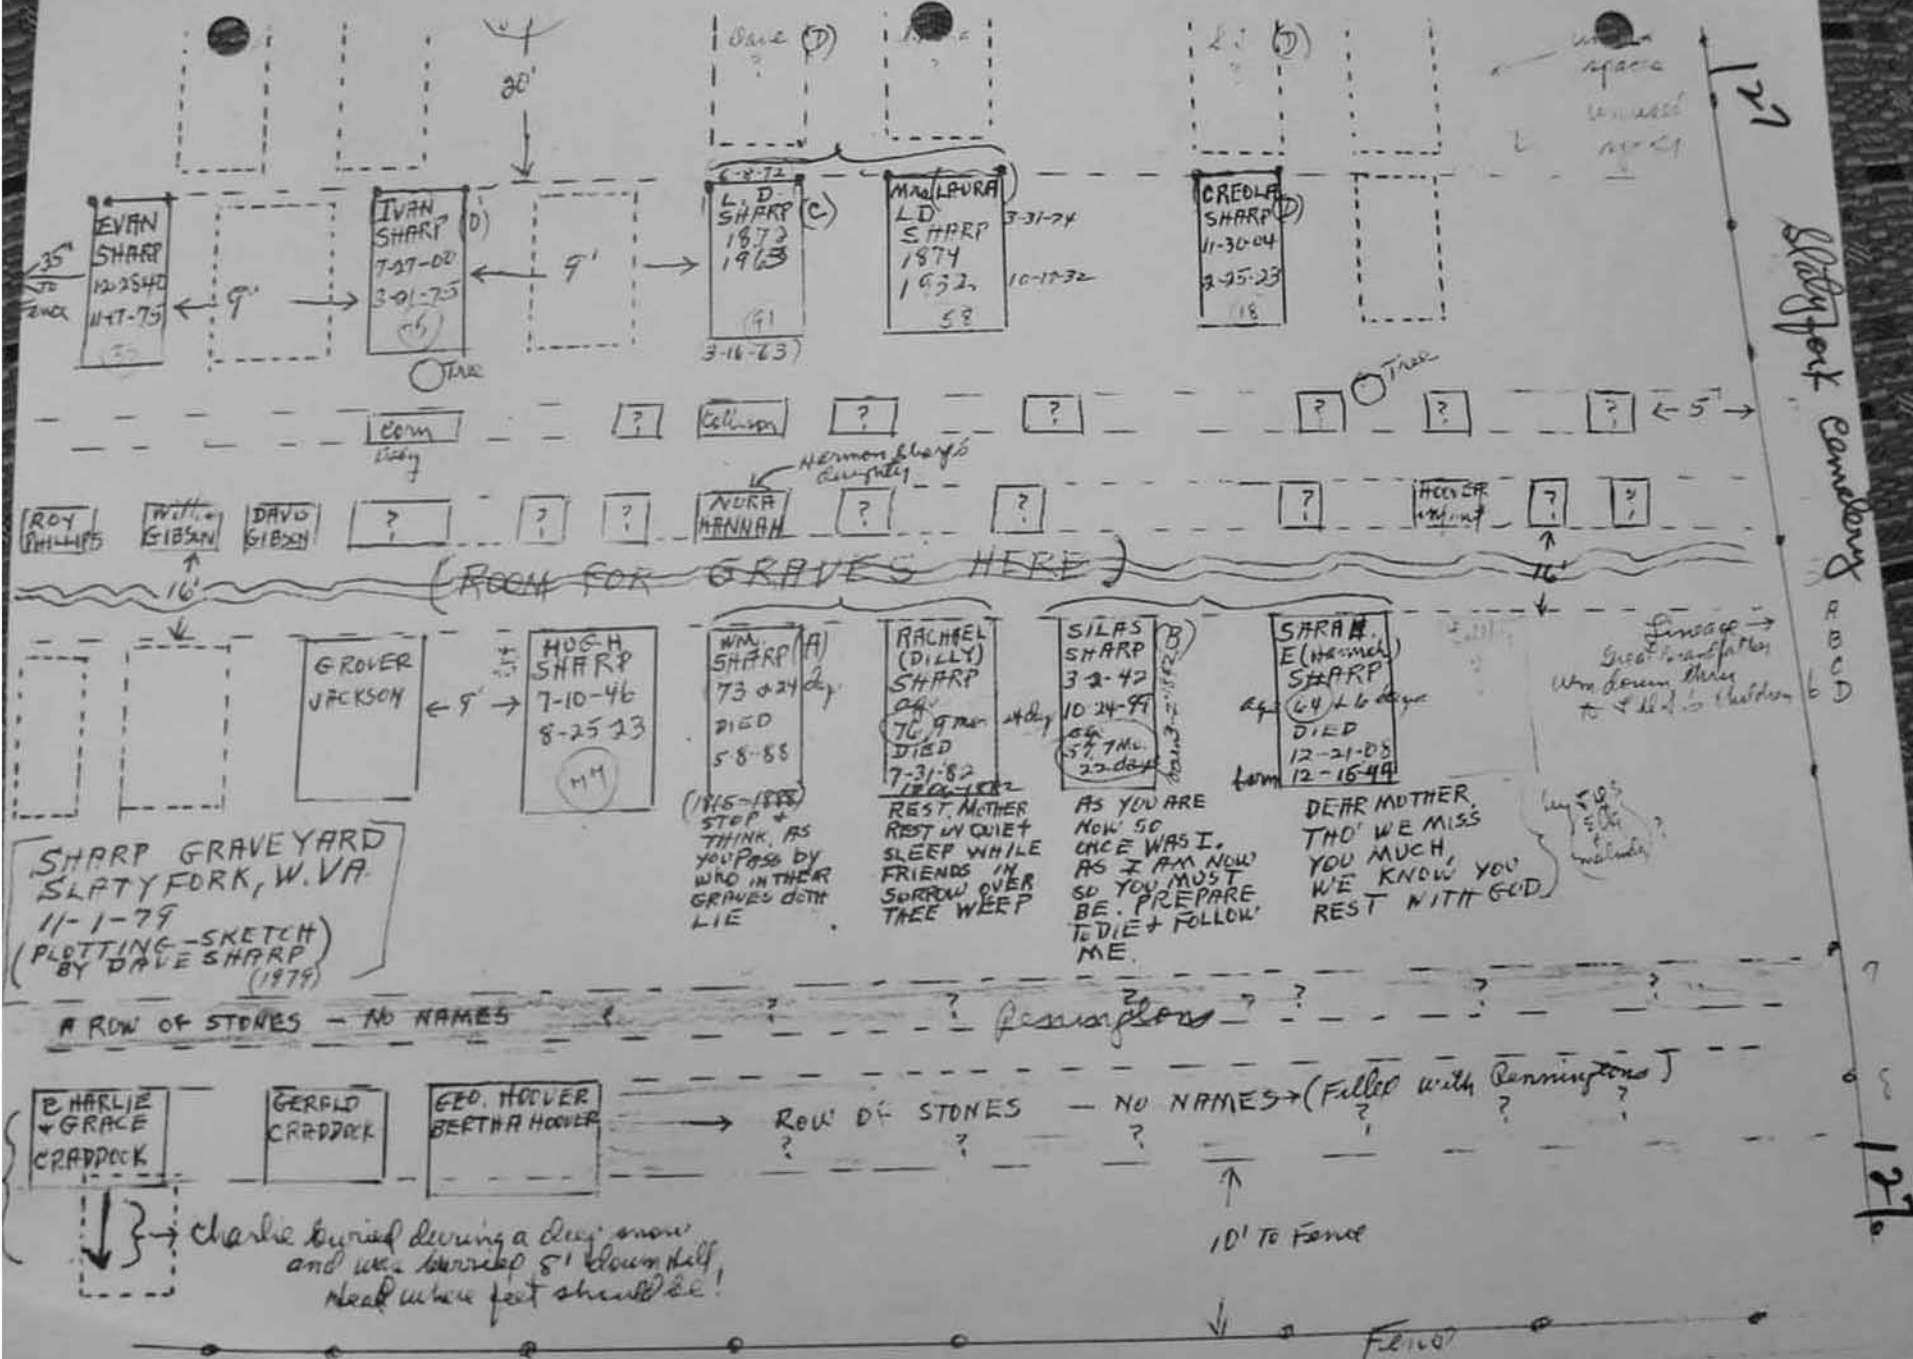 Dave (D)
?
?
(D)
?
20'
spaces
unused
127
Slatyfork Cemetery
35'
to
Fence
EVAN
SHARP
12-28-40
11-17-75
9'
IVAN
SHARP (D)
7-27-00
3-21-75
9'
6-8-72
L. D.
SHARP (C)
1872
1963
91
3-16-63)
Mrs (LAURA)
LD
SHARP
1874
1932
58
3-31-74
10-17-32
CREOLA
SHARP (D)
11-30-04
2-25-23
18
Tree
Tree
Corn
Baby
?
Collison
?
?
?
?
?
← 5' →
Harmon Sharp's
daughter
ROY
PHILLIPS
Willie
GIBSON
DAVE
GIBSON
?
?
?
NORA
HANNAH
?
?
?
HOOVER
infant
?
?
16'
(ROOM FOR GRAVES HERE)
16'
GROVER
JACKSON
← 9' →
HUGH
SHARP
7-10-46
8-25-23
77
WM.
SHARP (A)
73 & 24 dy.
DIED
5-8-88
(1815-1888)
STOP &
THINK, AS
YOU PASS BY
WHO IN THEIR
GRAVES DOTH
LIE
RACHAEL
(DILLY)
SHARP
age
76, 9 mo.
24 dy
DIED
7-31-82
REST MOTHER
REST IN QUIET
SLEEP WHILE
FRIENDS IN
SORROW OVER
THEE WEEP
SILAS
SHARP (B)
3-2-42
10-24-99
age
57 7 Mo.
22 days
born 3-2-1842
AS YOU ARE
NOW SO
ONCE WAS I.
AS I AM NOW
SO YOU MUST
BE. PREPARE
TO DIE & FOLLOW
ME.
SARAH.
E (Hannah)
SHARP
age 64 & 6 days
DIED
12-21-08
born 12-15-44
DEAR MOTHER,
THO' WE MISS
YOU MUCH,
WE KNOW YOU
REST WITH GOD
?
Lineage →
Great Grandfather
Wm down thru
to children
A
B
C
D
6
SHARP GRAVEYARD
SLATYFORK, W.VA.
11-1-79
(PLOTTING-SKETCH
BY DAVE SHARP)
(1979)
A ROW OF STONES – NO NAMES ? ? ? Penningtons ? ? ? ? ?
7
CHARLIE
& GRACE
CRADDOCK
GERALD
CRADDOCK
GEO. HOOVER
BERTHA HOOVER
→ ROW OF STONES – NO NAMES → (Filled with Penningtons)
? ? ? ? ? ?
8
127
Charlie buried during a deep snow
and was buried 8' down hill,
Head where feet should be!
10' TO Fence
Fence